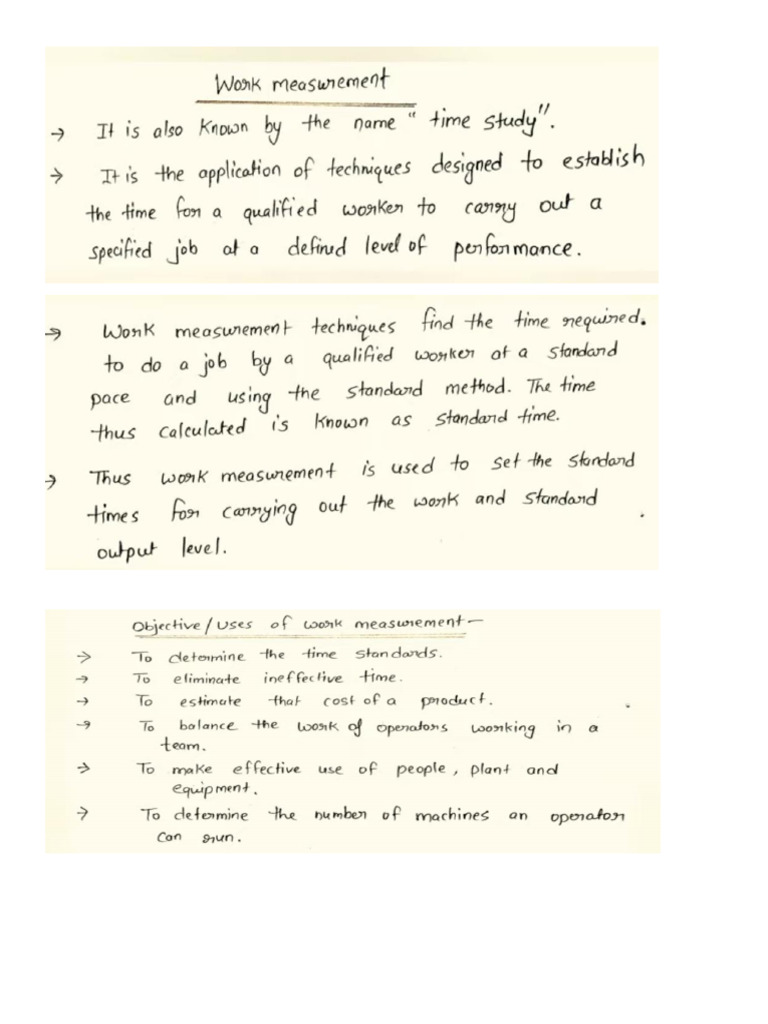 Work measurement
→ It is also known by the name "time study".
→ It is the application of techniques designed to establish
the time for a qualified worker to carry out a
specified job at a defined level of performance.
→ Work measurement techniques find the time required.
to do a job by a qualified worker at a standard
pace and using the standard method. The time
thus calculated is known as standard time.
→ Thus work measurement is used to set the standard
times for carrying out the work and standard
output level.
Objective/uses of work measurement—
→ To determine the time standards.
→ To eliminate ineffective time.
→ To estimate that cost of a product.
→ To balance the work of operators working in a
team.
→ To make effective use of people, plant and
equipment.
→ To determine the number of machines an operator
can run.